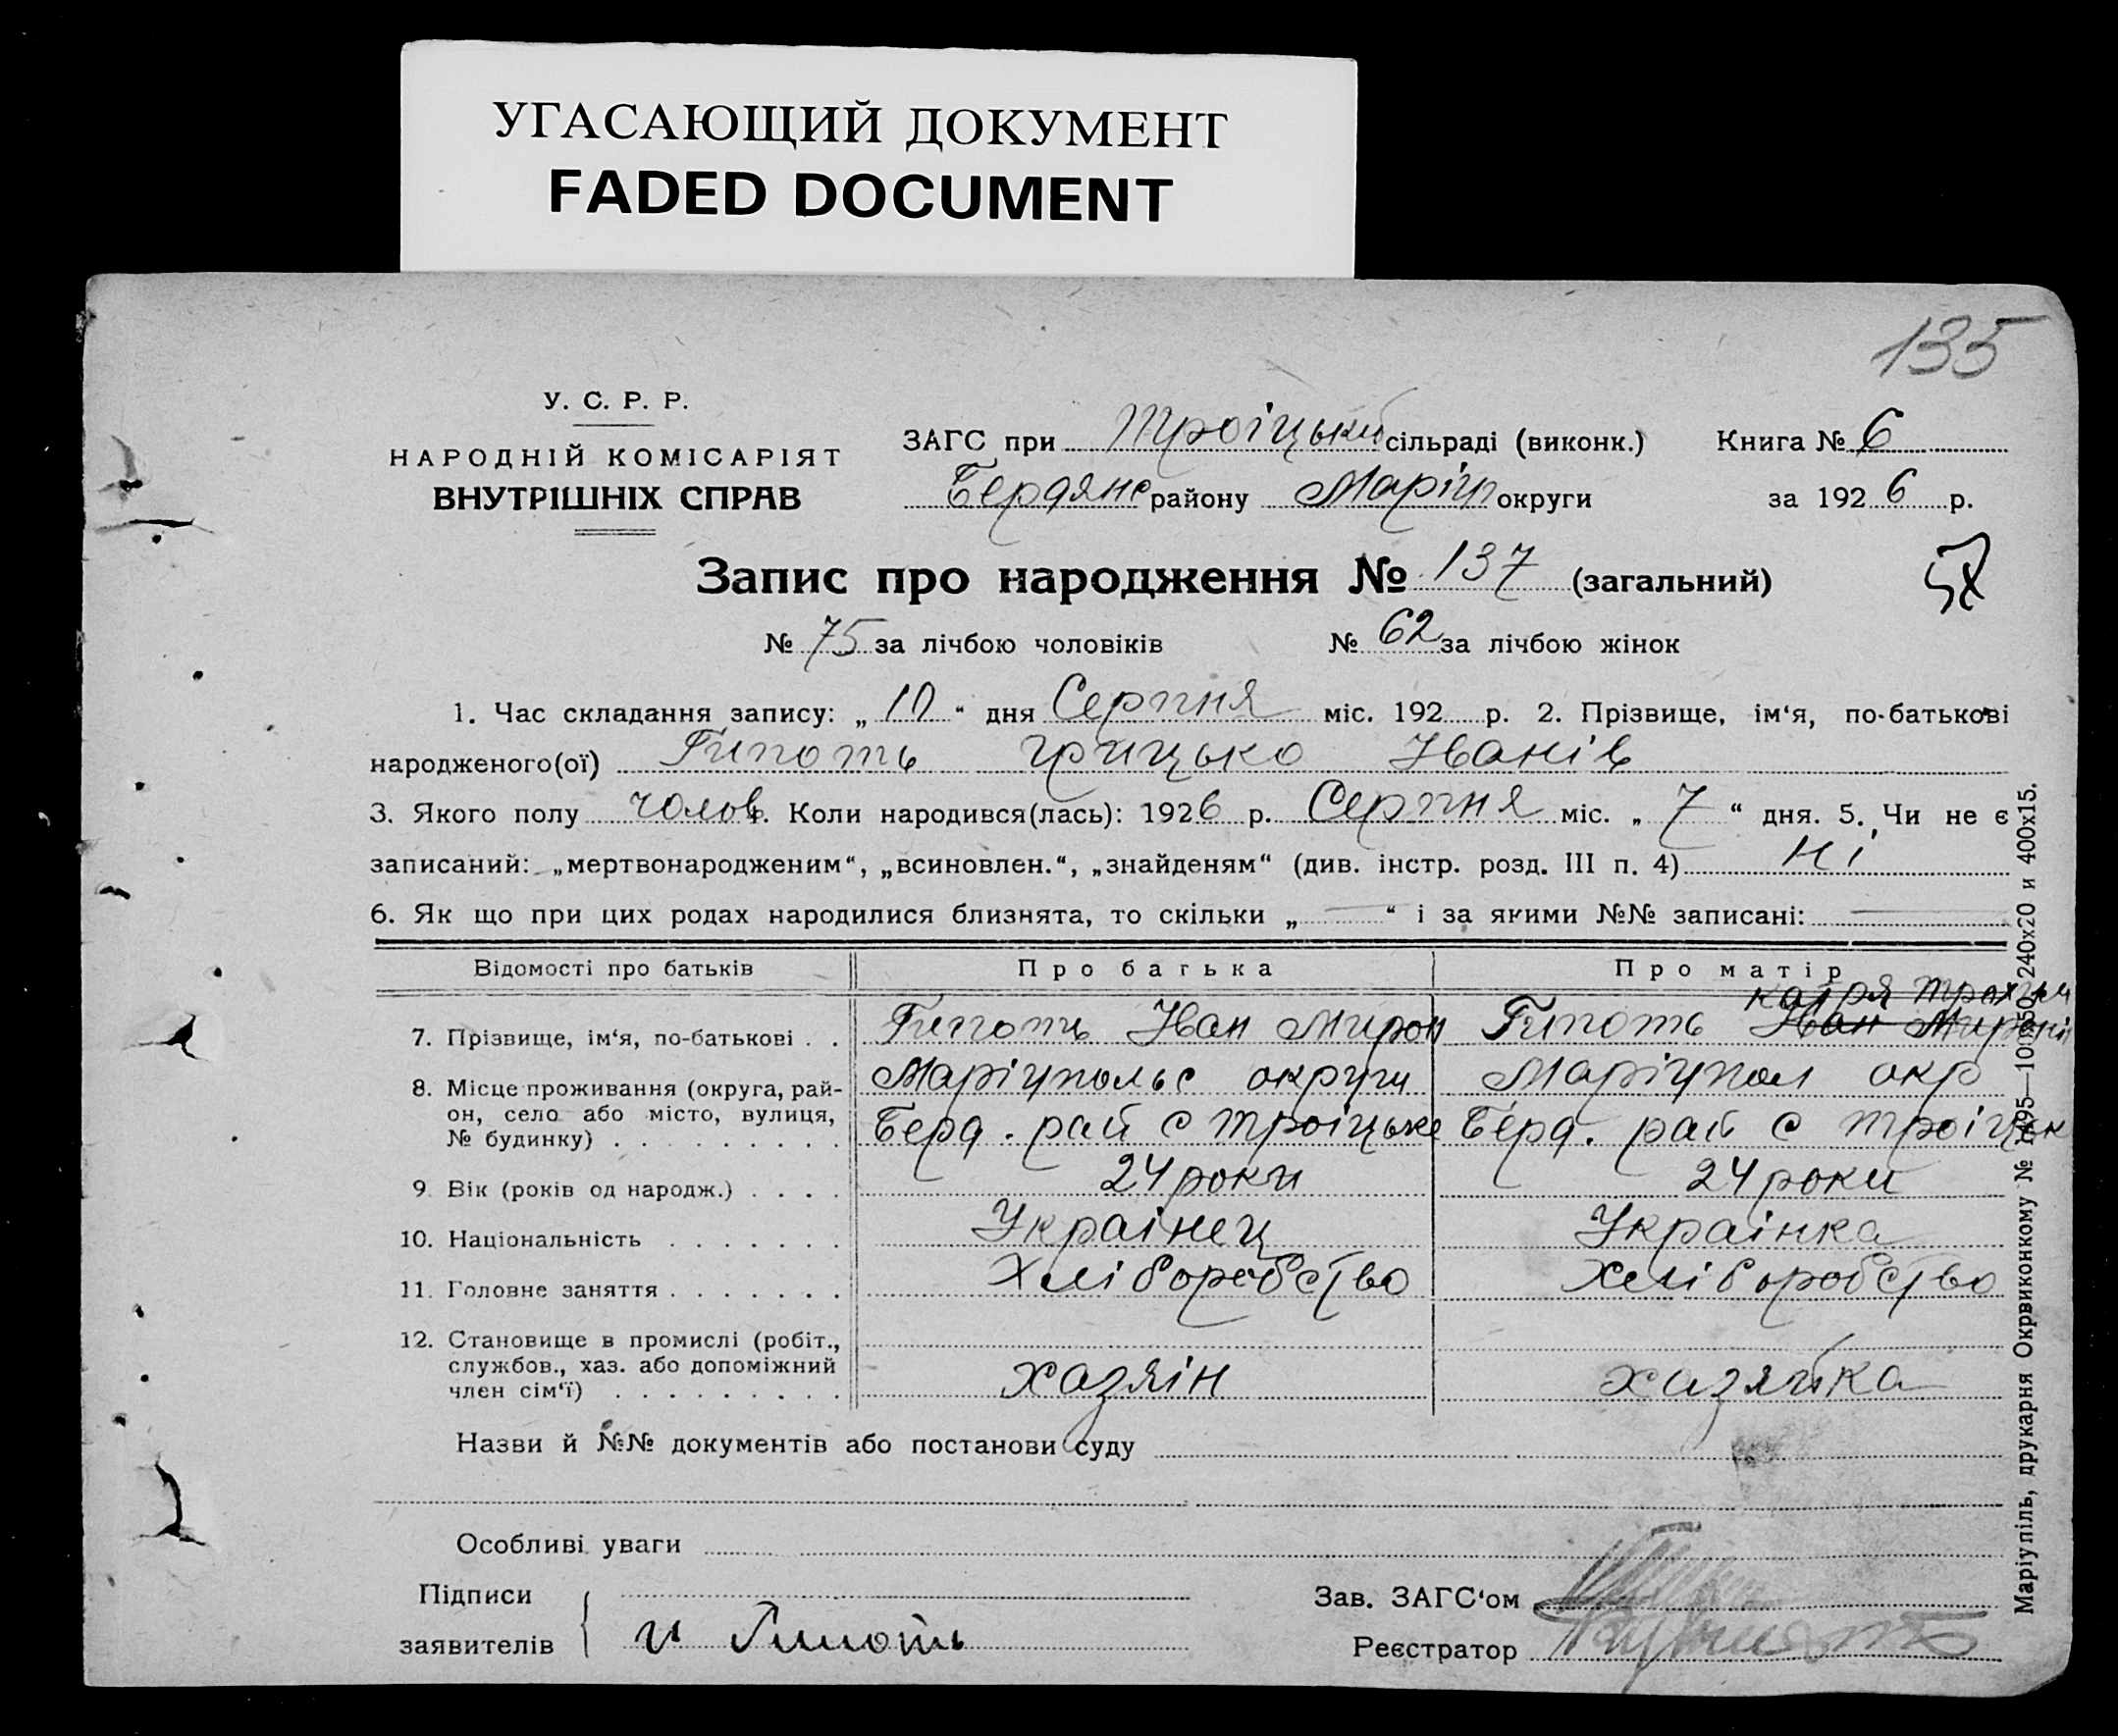 УГАСАЮЩИЙ ДОКУМЕНТ
FADED DOCUMENT
135
У. С. Р. Р.
НАРОДНІЙ КОМІСАРІЯТ
ВНУТРІШНІХ СПРАВ
ЗАГС при Троіцький сільраді (виконк.) Книга № 6
Бердянс району Маріуп округи за 1926 р.
Запис про народження № 137 (загальний)
№ 75 за лічбою чоловіків № 62 за лічбою жінок
1. Час складання запису: „10“ дня Серпня міс. 192 р. 2. Прізвище, ім‘я, по-батькові
народженого(ої) Гипоть Грицько Іванів
3. Якого полу чолов 4. Коли народився(лась): 1926 р. Серпня міс. „7“ дня. 5. Чи не є
записаний: „мертвонародженим“, „всиновлен.“, „знайденям“ (див. інстр. розд. III п. 4) Ні
6. Як що при цих родах народилися близнята, то скільки „ — “ і за якими №№ записані: —
Відомості про батьків Про батька Про матір
Катря Трахим
7. Прізвище, ім‘я, по-батькові . . Гипоть Іван Мирон Гипоть Іван Миронів
8. Місце проживання (округа, рай- Маріупольс округи Маріупол окр
он, село або місто, вулиця, Берд. рай с Троіцьке Берд. рай с Троіцьк
№ будинку) . . . . . . . . .
9. Вік (років од народж.) . . . . 24 роки 24 роки
10. Національність . . . . . . . Украінец Украінка
11. Головне заняття . . . . . . . Хліборобство Хліборобство
12. Становище в промислі (робіт.,
службов., хаз. або допоміжний хазяін хазяйка
член сім‘ї) . . . . . . . . .
Назви й №№ документів або постанови суду
Особливі уваги
Підписи Зав. ЗАГС‘ом
заявителів и Гипоть Реєстратор
Маріупіль, друкарня Окрвиконкому № 1095—100 50 240x20 и 400x15.